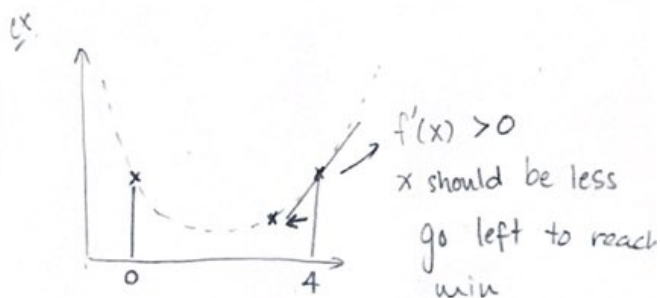 ex
f'(x) > 0
x should be less
go left to reach
min
0 4